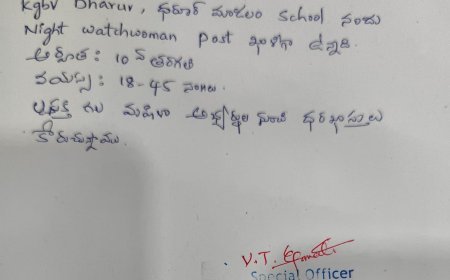 Kgbv Dharur, ధరూర్ మండలం School నందు
Night watchwoman Post ఖాళీగా ఉన్నది.
అర్హత : 10 వ తరగతి
వయస్సు : 18-45 సంలు.
ఆసక్తి గల మహిళా అభ్యర్థుల నుంచి ధరఖాస్తులు
కోరుచున్నాము.
V.T.
Special Officer